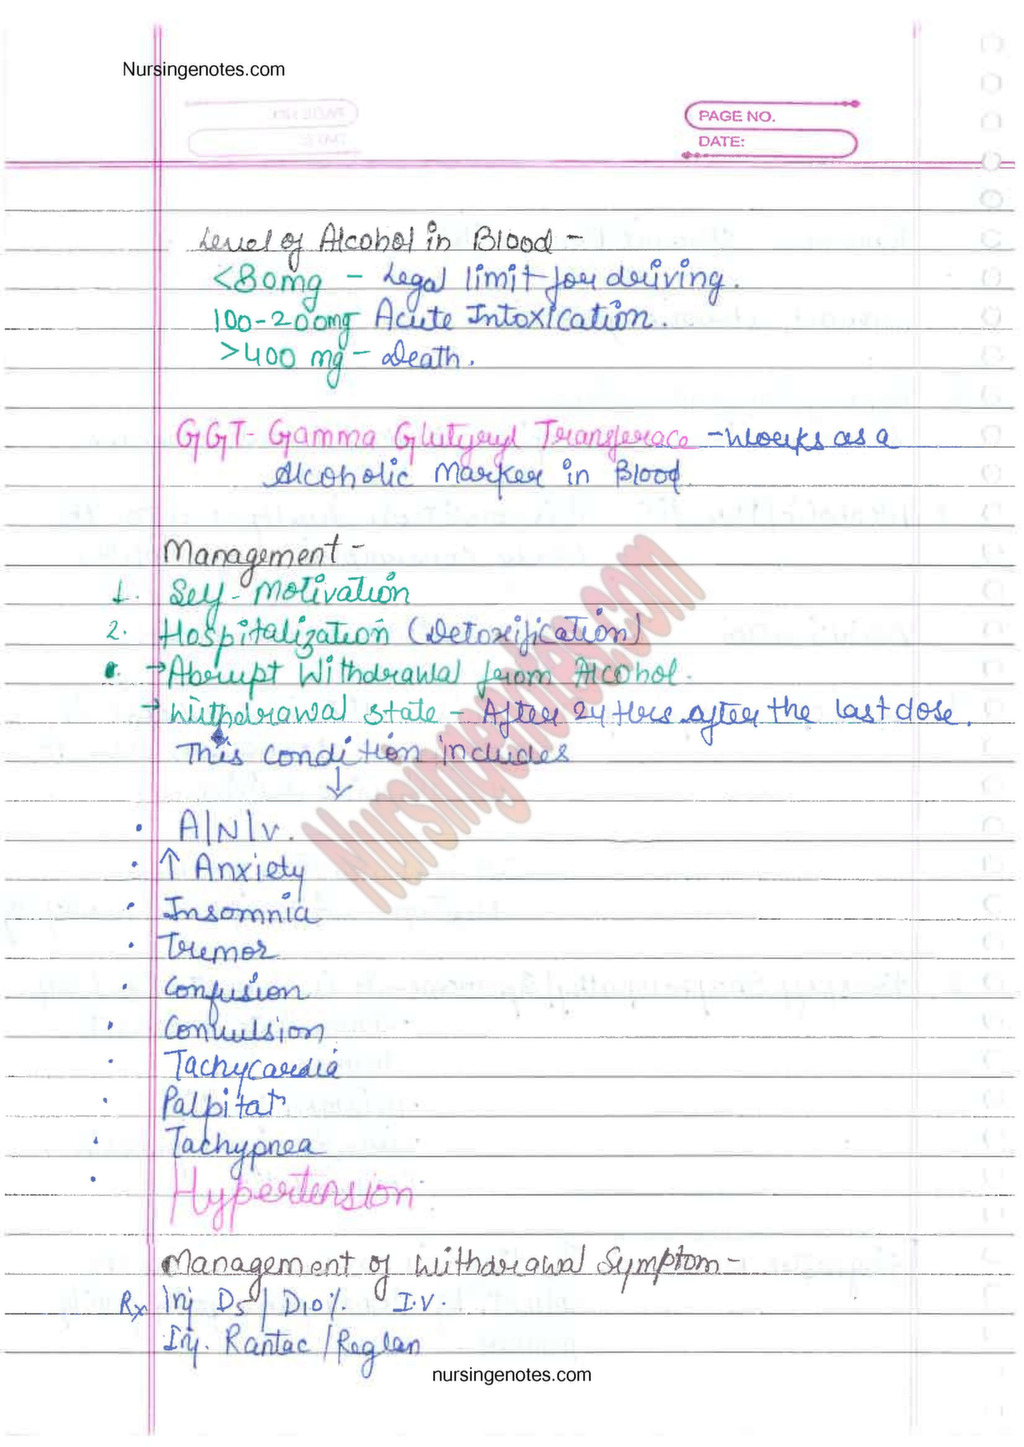 Nursingenotes.com
PAGE NO.
DATE:
Level of Alcohol in Blood -
<80mg - Legal limit for deriving.
100-200mg Acute Intoxication.
>400 mg - death.
GGT- Gamma Glutyryl Transferace - works as a
Alcoholic Marker in Blood
Management -
1. Self-Motivation
2. Hospitalization (Detoxification)
→ Abrupt Withdrawal from Alcohol.
→ Withdrawal state - After 24 Hrs after the last dose.
This condition includes
↓
• A|N|V.
• ↑ Anxiety
• Insomnia
• Tremor
• Confusion
• Convulsion
• Tachycardia
• Palpitatn
• Tachypnea
• Hypertension
Management of Withdrawal Symptom -
Rx Inj D5 / D10%. I.V.
Inj. Rantac / Reglan
nursingenotes.com
Nursingenotes.com